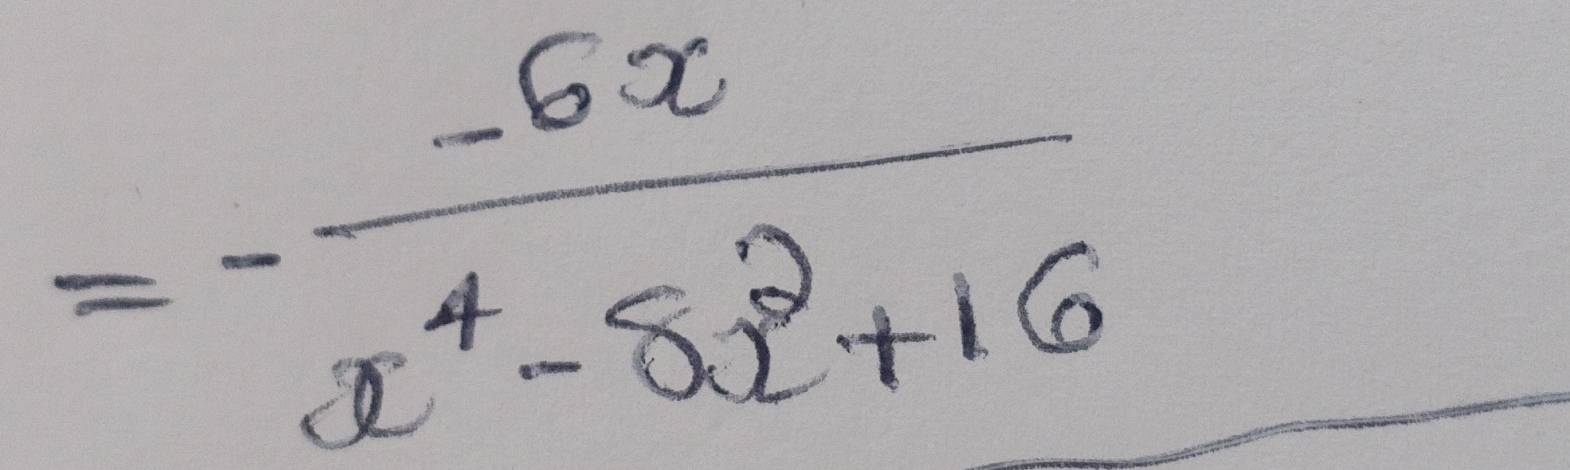 = - \frac{-6x}{x^4 - 8x^2 + 16}